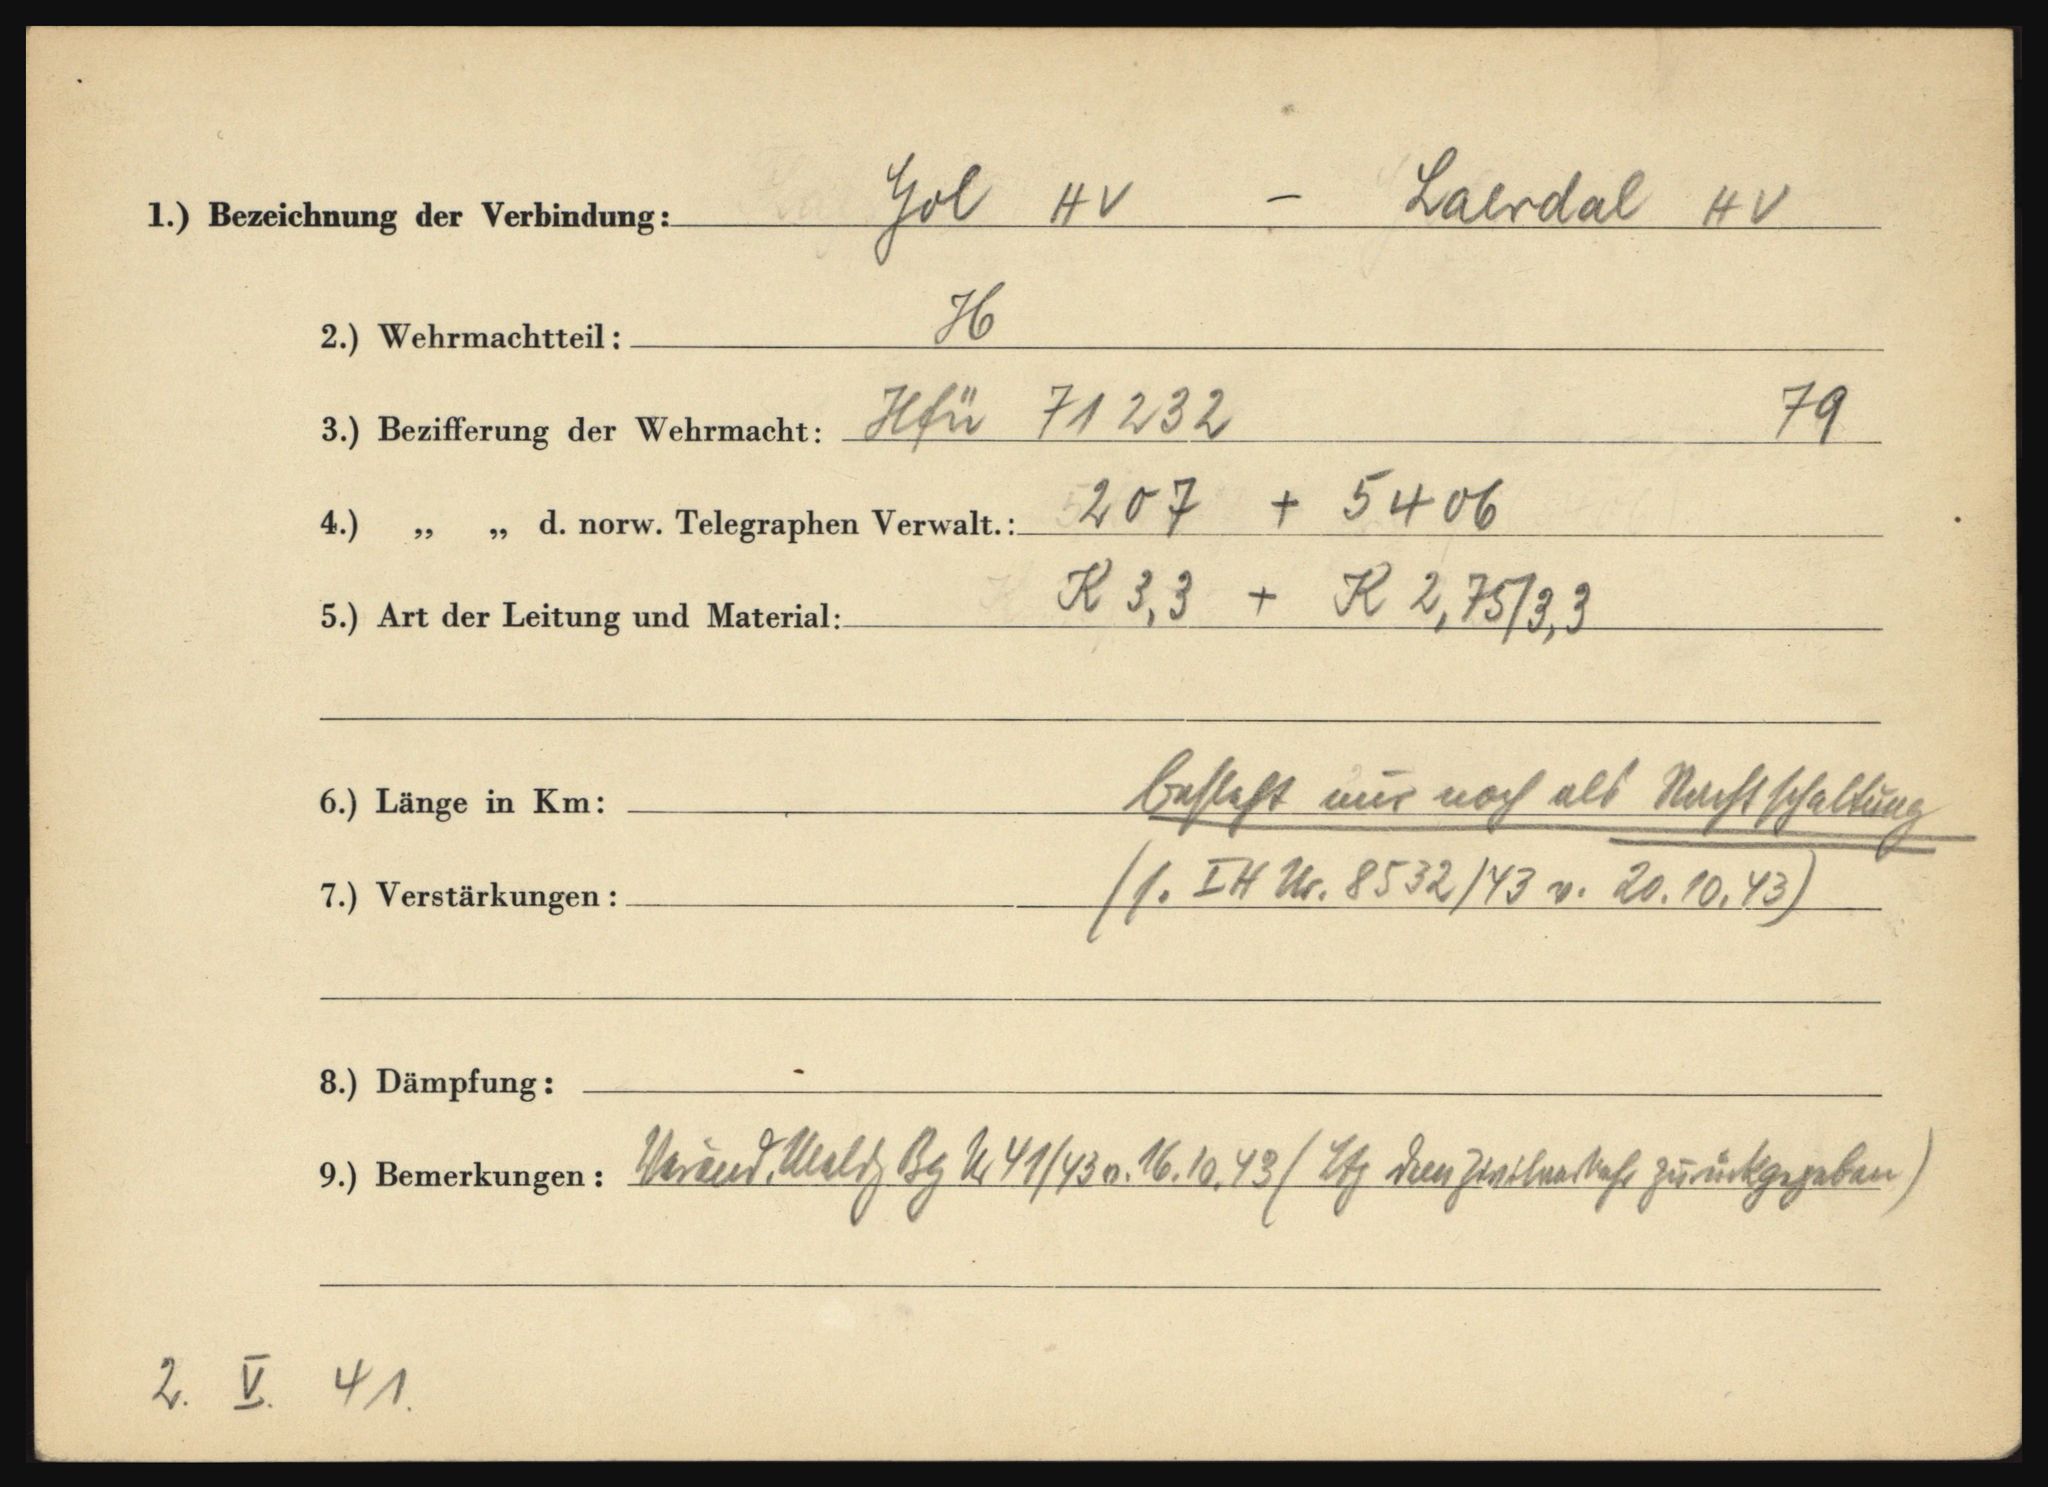 1.) Bezeichnung der Verbindung: Gol HV - Laerdal HV
2.) Wehrmachtteil: H
3.) Bezifferung der Wehrmacht: Hfü 71232 79
4.) „ „ d. norw. Telegraphen Verwalt.: 207 + 5406
5.) Art der Leitung und Material: K 3,3 + K 2,75/3,3
6.) Länge in Km: besteht nur noch als Nachtschaltung
7.) Verstärkungen: (s. IH Nr. 8532/43 v. 20.10.43)
8.) Dämpfung:
9.) Bemerkungen: Veränd. Meldg Bg Nr 41/43 v. 16.10.43 (Ltg dem Zivilverkehr zurückgegeben)
2. V. 41.